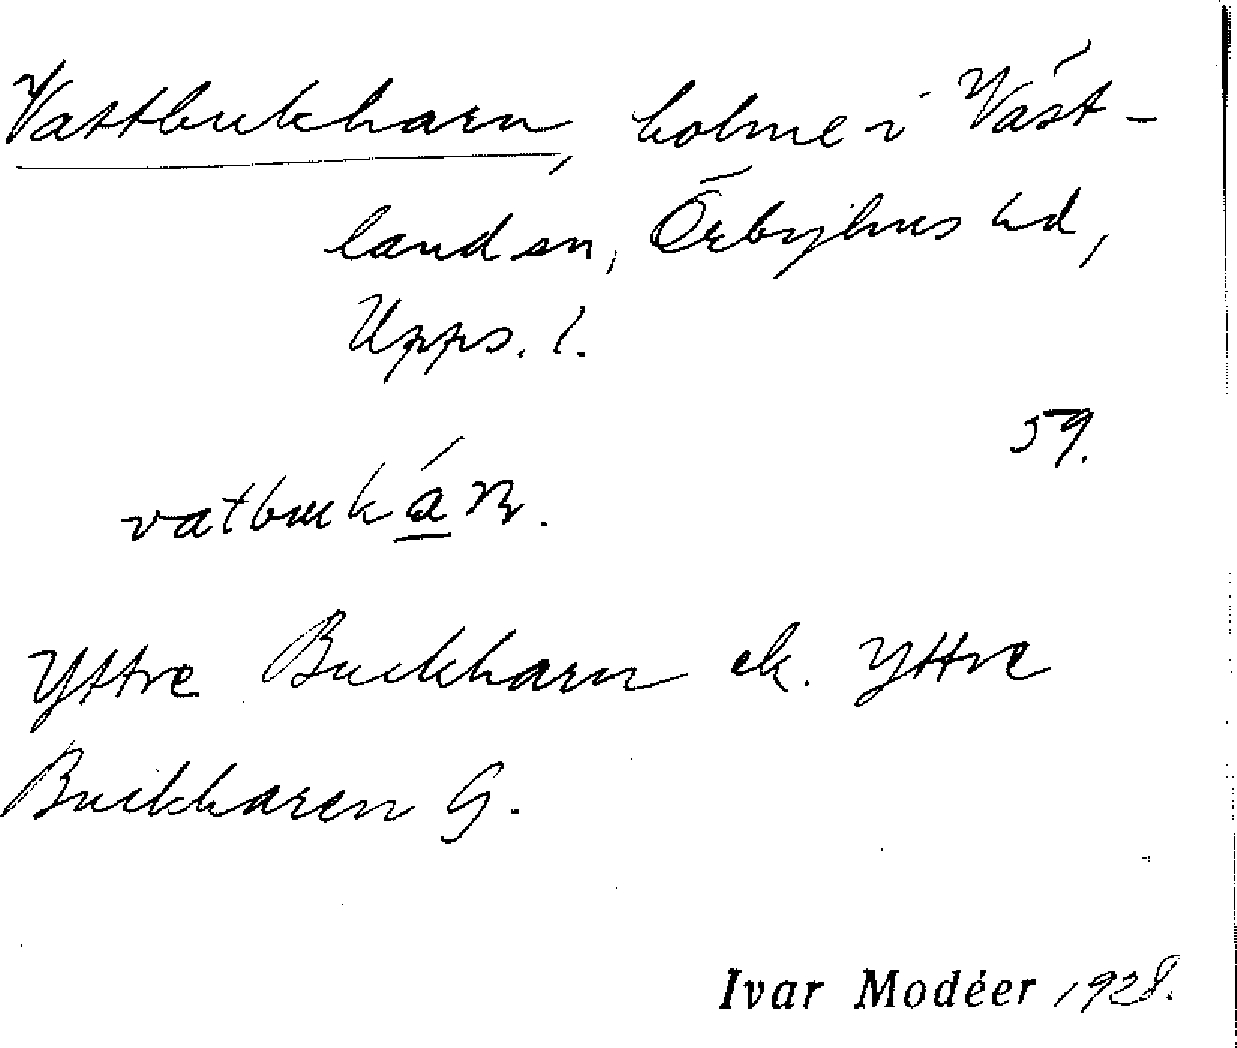 Vattbukharn, holme i Väst-
land sn, Örbyhus hd,
Upps. l.
59.
vatbukárn.
Yttre Buckharn ek. Yttre
Buckharen G.
Ivar Modéer 1928.